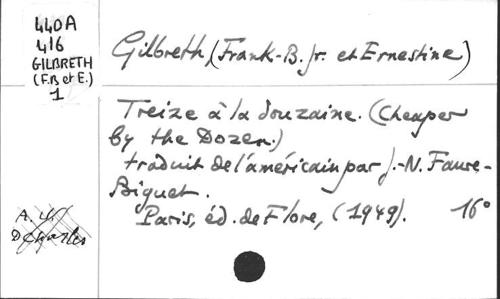 440A
416
GILBRETH
(F.B et E.)
1
Gilbreth (Frank-B. Jr. et Ernestine)
Treize à la douzaine. (Cheaper
by the Dozen.)
traduit de l'américain par J.-N. Faure-
Biguet.
Paris, éd. de Flore, (1949). 16°
A. U.
DCharles